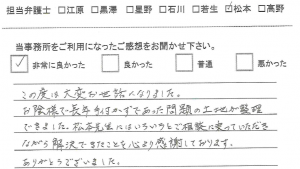 担当弁護士 □江原 □黒澤 □星野 □石川 □若生 ☑松本 □髙野
当事務所をご利用になったご感想をお聞かせ下さい。
☑ 非常に良かった □ 良かった □ 普通 □ 悪かった
この度は大変お世話になりました。
お陰様で長年手付かずであった問題の土地が整理
できました。松本先生にはいろいろとご相談に乗っていただき
ながら解決できたことを心より感謝しております。
ありがとうございました。